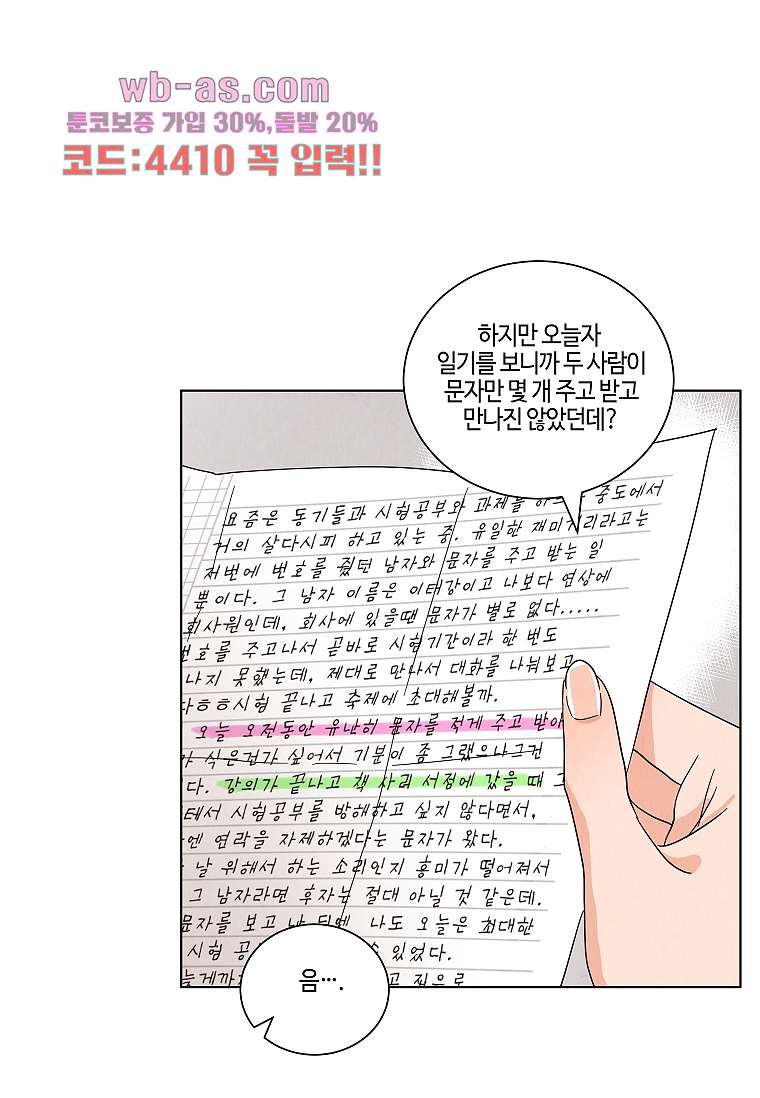 wb-as.com
툰코보증 가입 30%,돌발 20%
코드:4410 꼭 입력!!
하지만 오늘자
일기를 보니까 두 사람이
문자만 몇 개 주고 받고
만나진 않았던데?
요즘은 동기들과 시험공부와 과제를 중도에서
거의 살다시피 하고 있는 중. 유일한 재미거리라고는
저번에 번호를 줬던 남자와 문자를 주고 받는 일
뿐이다. 그 남자 이름은 이태강이고 나보다 연상에
회사원인데, 회사에 있을땐 문자가 별로 없다.....
번호를 주고나서 곧바로 시험기간이라 한 번도
나지 못했는데, 제대로 만나서 대화를 나눠보고
다ㅎㅎ시험 끝나고 축제에 초대해볼까.
오늘 오전동안 유난히 문자를 적게 주고 받아
가 식은건가 싶어서 기분이 좀 그랬으나그건
다. 강의가 끝나고 책 사러 서점에 갔을 때 그
테서 시험공부를 방해하고 싶지 않다면서,
엔 연락을 자제하겠다는 문자가 왔다.
날 위해서 하는 소리인지 흥미가 떨어져서
그 남자라면 후자는 절대 아닐 것 같은데.
문자를 보고 난 뒤엔 나도 오늘은 최대한
시험 공 수 있었다.
늦게까 고 집으로
음….